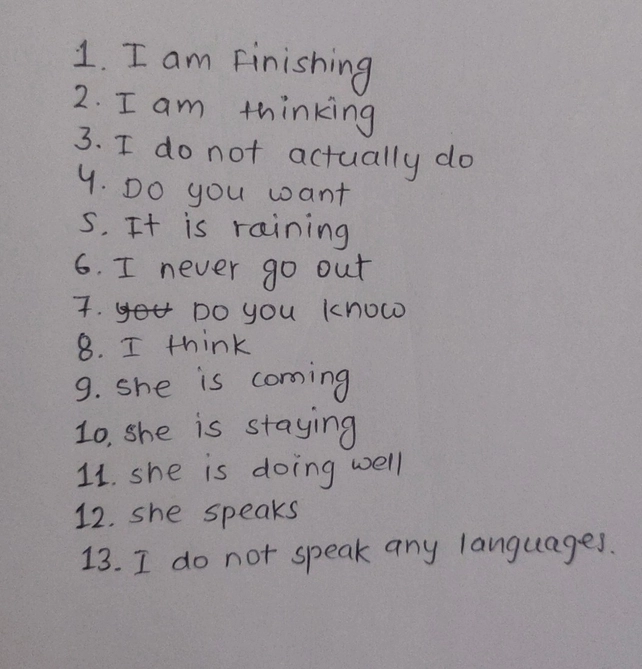 1. I am Finishing
2. I am thinking
3. I do not actually do
4. Do you want
5. It is raining
6. I never go out
7. you Do you know
8. I think
9. she is coming
10. she is staying
11. she is doing well
12. she speaks
13. I do not speak any languages.